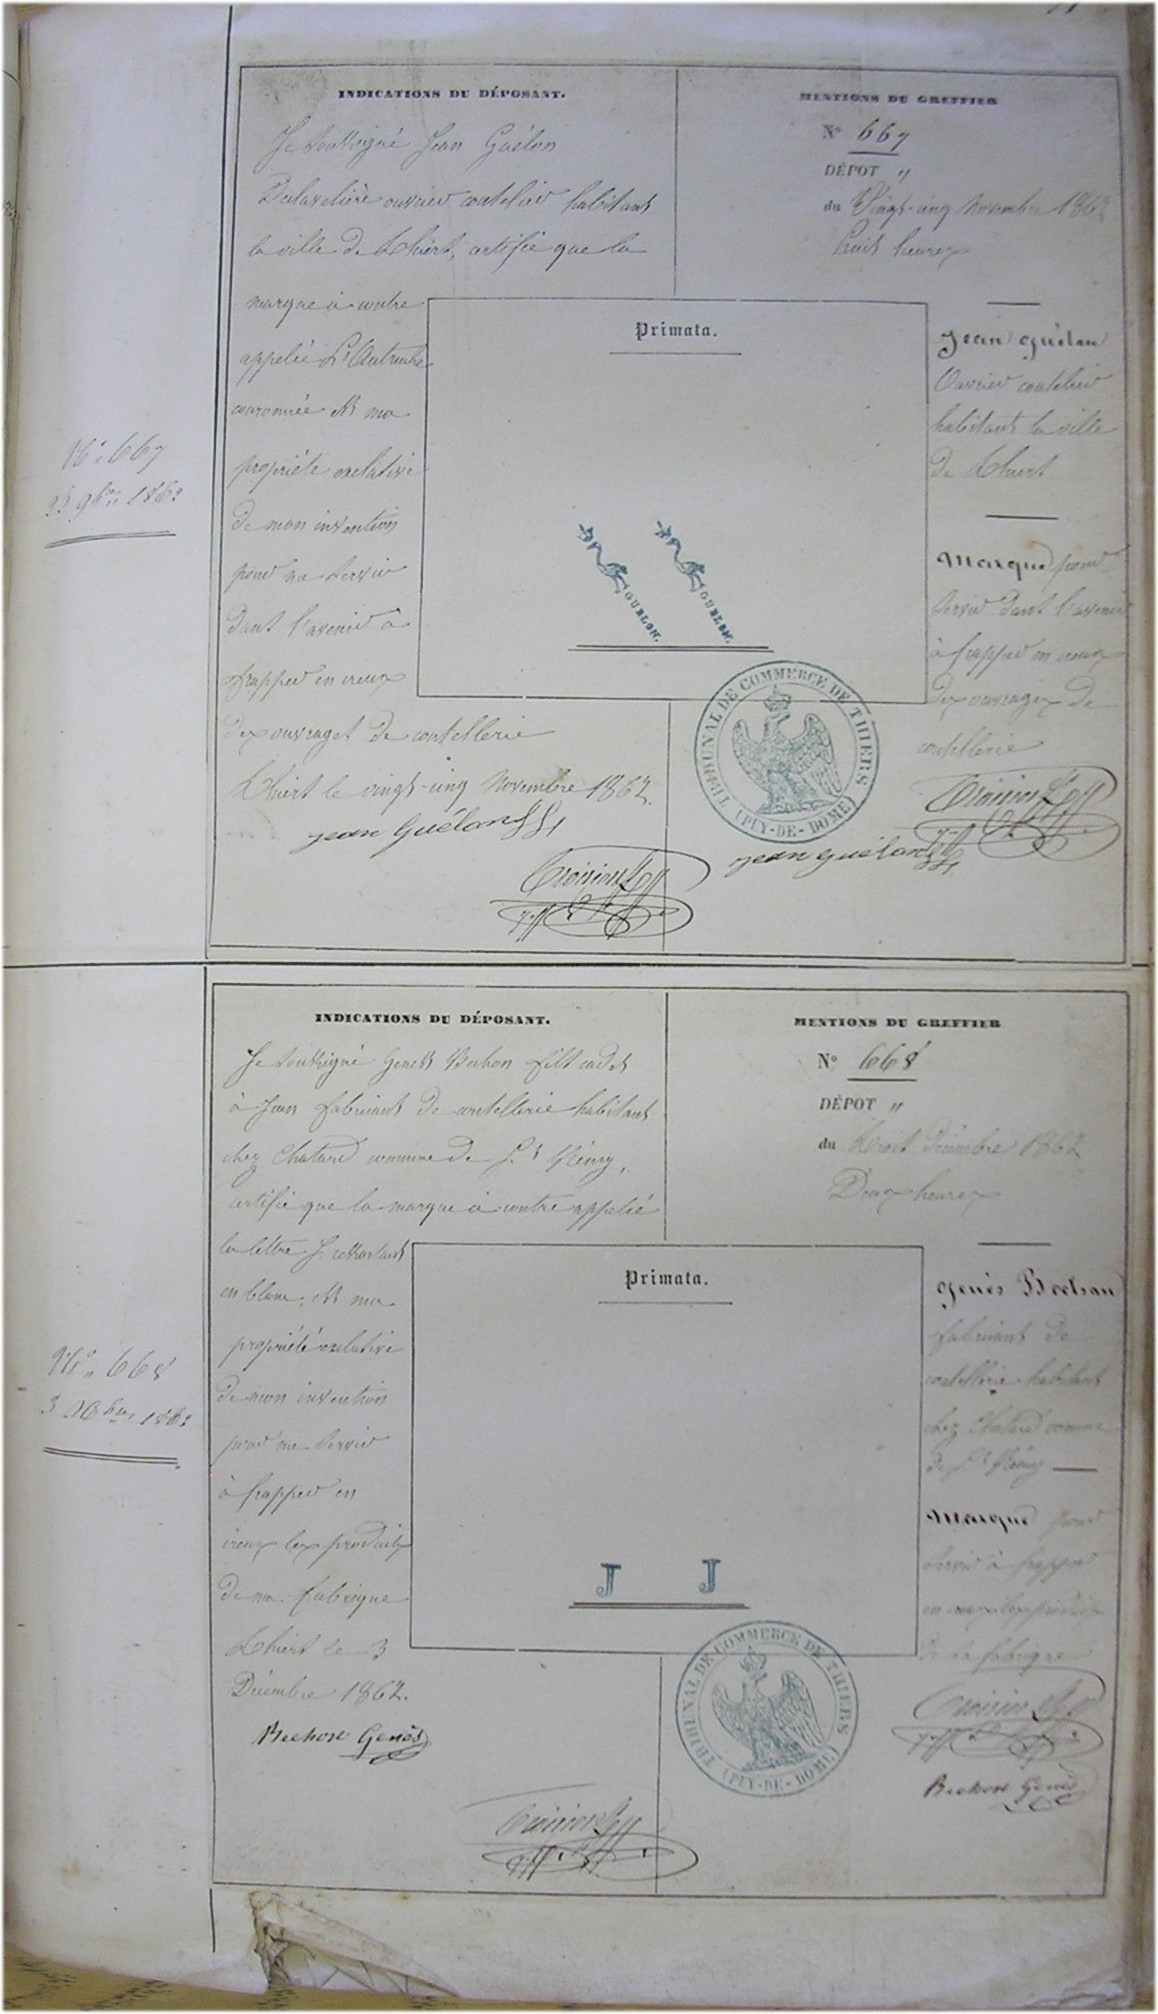 N° 667
25 9bre 1862
INDICATIONS DU DÉPOSANT.
Je soussigné Jean Guélon
ouvrier coutelier habitant
la ville de Thiers, certifie que la
marque à contre
appelée L'Autruche
couronnée est ma
propriété exclusive
de mon invention
pour me servir
dans l'avenir à
frapper en creux
des ouvrages de coutellerie
Thiers le vingt-cinq Novembre 1862.
Jean Guélon
MENTIONS DU GREFFIER
N° 667
DÉPOT "
du Vingt-cinq Novembre 1862
huit heures
Primata.
GUELON.
GUELON.
Jean Guélon
Ouvrier coutelier
habitant la ville
de Thiers
Marque pour
servir dans l'avenir
à frapper en creux
des ouvrages de
coutellerie
TRIBUNAL DE COMMERCE DE THIERS
(PUY-DE-DOME)
Jean Guélon
N° 668
3 Xbre 1862
INDICATIONS DU DÉPOSANT.
Je soussigné Genès Bechon fils cadet
à Jean fabricant de coutellerie habitant
chez Chatard commune de St Rémy,
certifie que la marque à contre appelée
la lettre J ressortant
en blanc, est ma
propriété exclusive
de mon invention
pour me servir
à frapper en
creux les produits
de ma fabrique
Thiers le 3
Décembre 1862.
Bechon Genès
MENTIONS DU GREFFIER
N° 668
DÉPOT "
du Trois Décembre 1862
Deux heures
Primata.
J J
Genès Bechon
fabricant de
coutellerie habitant
chez Chatard commune
de St Rémy
Marque pour
servir à frapper
en creux les produits
de sa fabrique
TRIBUNAL DE COMMERCE DE THIERS
(PUY-DE-DOME)
Bechon Genès